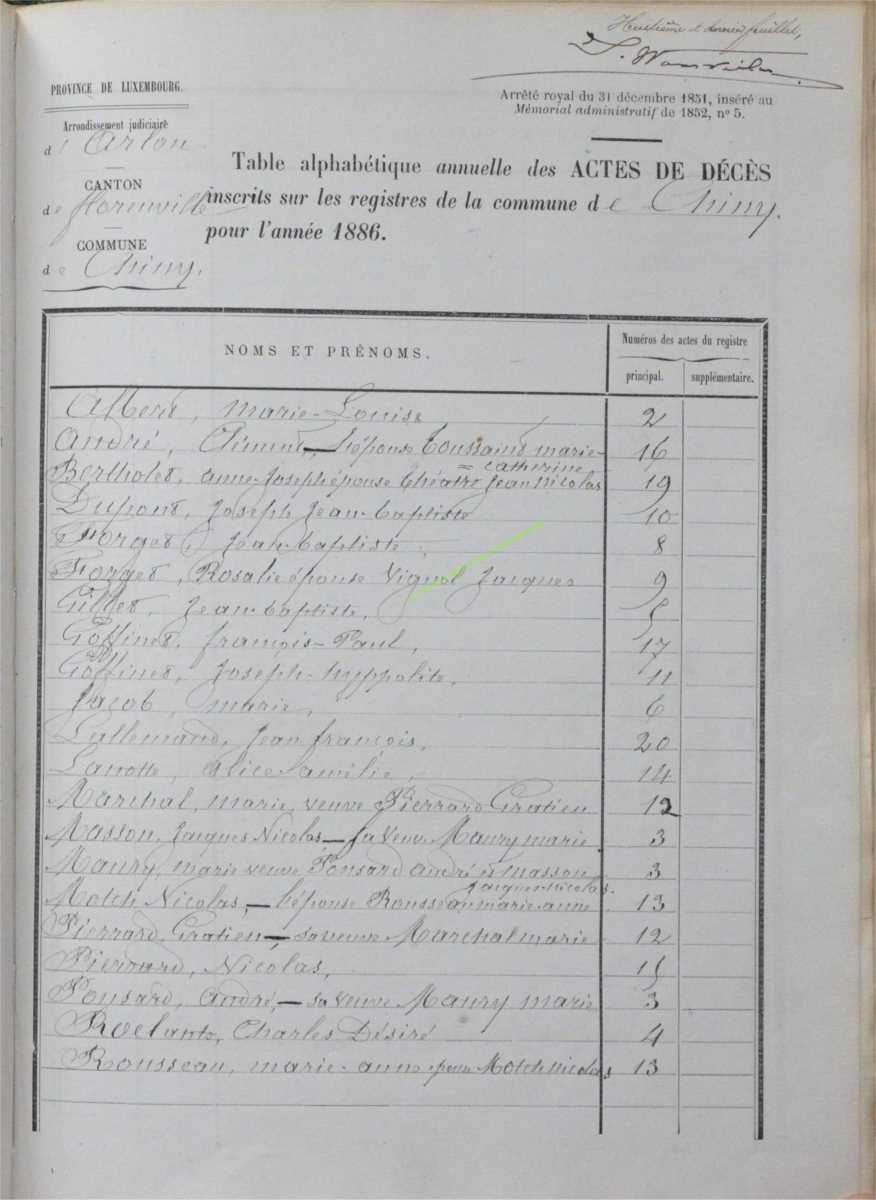 Huitième et dernier feuillet,
PROVINCE DE LUXEMBOURG.
Arrondissement judiciaire
d'Arlon
CANTON
de florenville
COMMUNE
de Chiny.
Arrêté royal du 31 décembre 1851, inséré au
Mémorial administratif de 1852, n° 5.
Table alphabétique annuelle des ACTES DE DÉCÈS
inscrits sur les registres de la commune de Chiny.
pour l'année 1886.
NOMS ET PRÉNOMS.
Numéros des actes du registre
principal. supplémentaire.
Albert, marie-Louise 2
André, Clément, — l'épouse Toussaint marie- 16
= catherine
Bertholet, anne-Joseph épouse Théatre Jean Nicolas 19
Dupont, Joseph Jean-baptiste 10
Forget, Jean-baptiste. 8
Forget, Rosalie épouse Vignol Jacques 9
Gillet, Jean-baptiste, 5
Goffinet, françois-Paul, 17
Goffinet, Joseph-hyppolite, 11
Jacob, marie, 6
Lallemand, Jean françois, 20
Lanotte, alice-amélie, 14
Marchal, marie, veuve Pierrard Gratien 12
Masson, Jacques Nicolas — sa veuve Maury marie 3
Maury, marie veuve Ponsard andré et masson 3
Jacques-nicolas.
Motch Nicolas, — l'épouse Rousseau marie-anne 13
Pierrard, Gratien, — sa veuve Marchal marie 12
Pierrard, Nicolas, 15
Ponsard, andré, — sa veuve Maury marie 3
Roelants, Charles Désiré 4
Rousseau, marie-anne épouse Motch nicolas 13